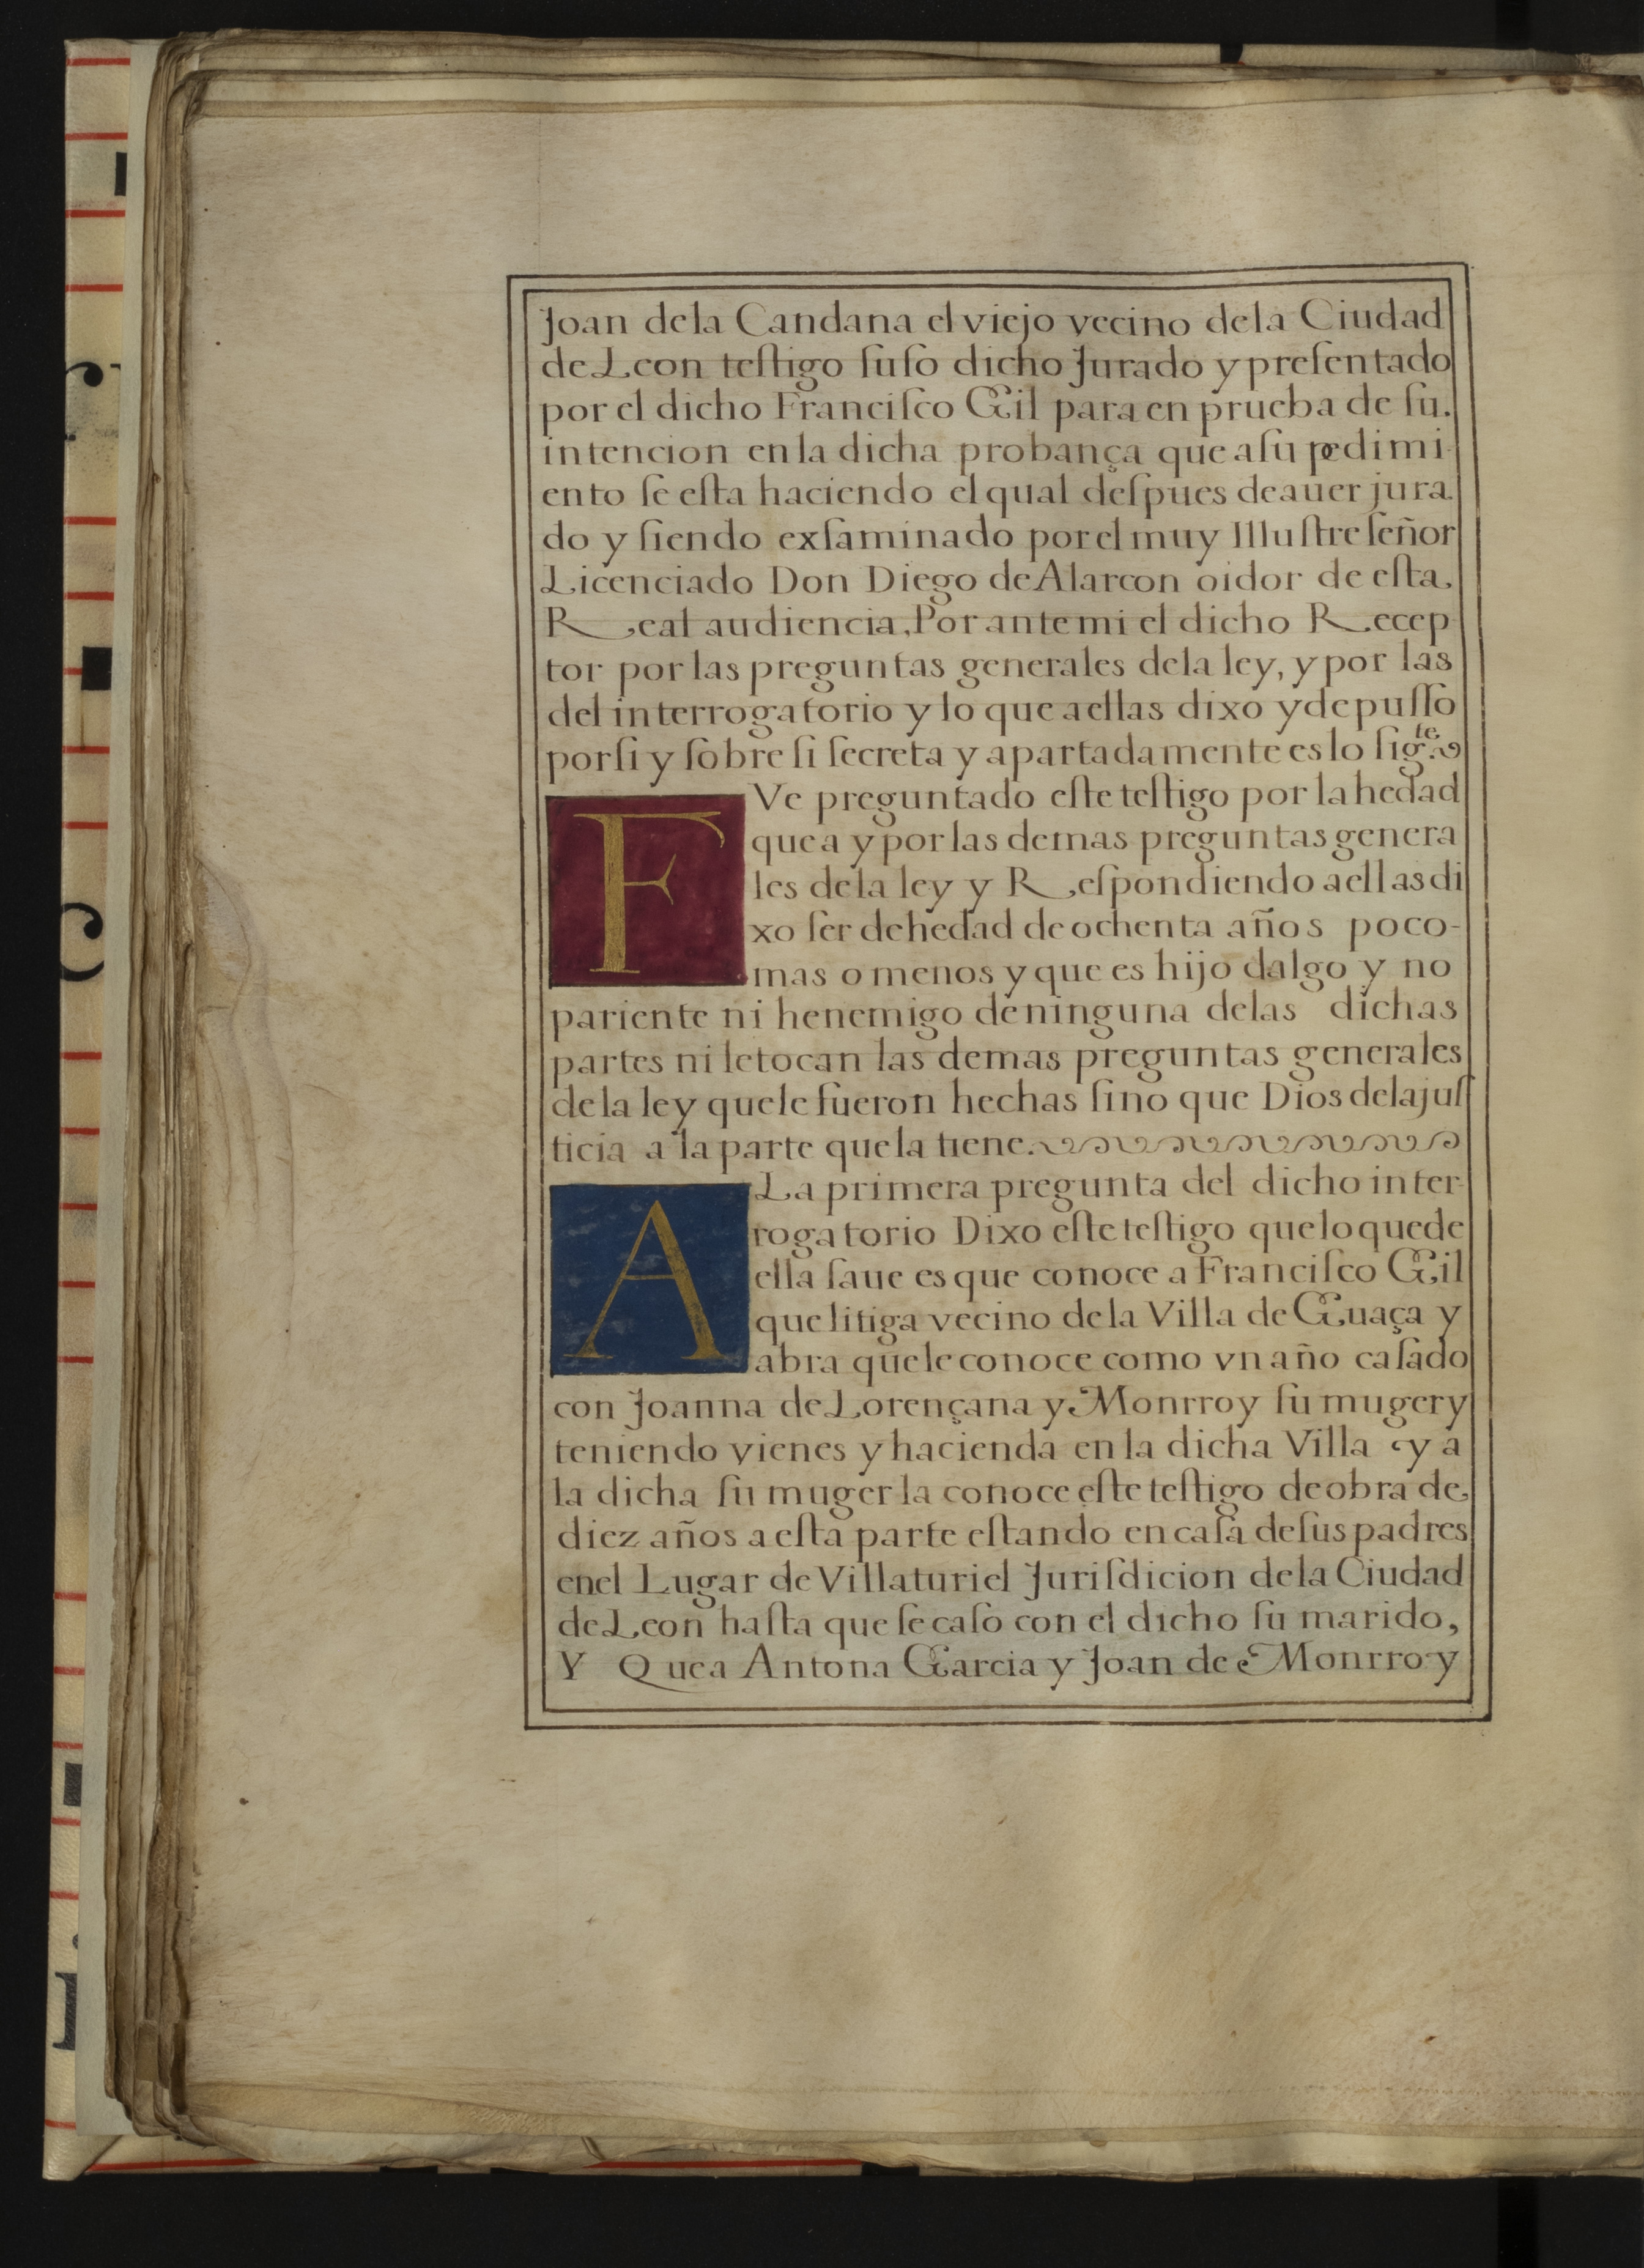 Joan dela Candana el viejo vecino dela Ciudad
de Leon teſtigo ſuſo dicho Jurado y preſentado
por el dicho Franciſco Gil para en prueba de ſu.
intencion en la dicha probança que a ſu pedimi-
ento ſe eſta haciendo el qual deſpues de auer jura.
do y ſiendo exſaminado por el muy Illuſtre ſeñor
Licenciado Don Diego de Alarcon oidor de eſta,
Real audiencia, Por ante mi el dicho Recep
tor por las preguntas generales dela ley, y por las
del interrogatorio y lo que a ellas dixo y depuſſo
por ſi y ſobre ſi ſecreta y apartadamente es lo ſig.te
FVe preguntado eſte teſtigo por la hedad
que a y por las demas preguntas genera
les dela ley y Reſpondiendo a ellas di
xo ſer de hedad de ochenta años poco-
mas o menos y que es hijo dalgo y no
pariente ni henemigo de ninguna delas dichas
partes ni le tocan las demas preguntas generales
dela ley que le fueron hechas ſino que Dios de la juſ
ticia a la parte que la tiene.
ALa primera pregunta del dicho inter-
rogatorio Dixo eſte teſtigo que lo que de
ella ſaue es que conoce a Franciſco Gil
que litiga vecino dela Villa de Guaça y
abra que le conoce como vn año caſado
con Joanna de Lorençana y Monrroy ſu muger y
teniendo vienes y hacienda en la dicha Villa y a
la dicha ſu muger la conoce eſte teſtigo de obra de
diez años a eſta parte eſtando en caſa de ſus padres
enel Lugar de Villaturiel Juriſdicion dela Ciudad
de Leon haſta que ſe caſo con el dicho ſu marido,
Y Que a Antona Garcia y Joan de Monrroy